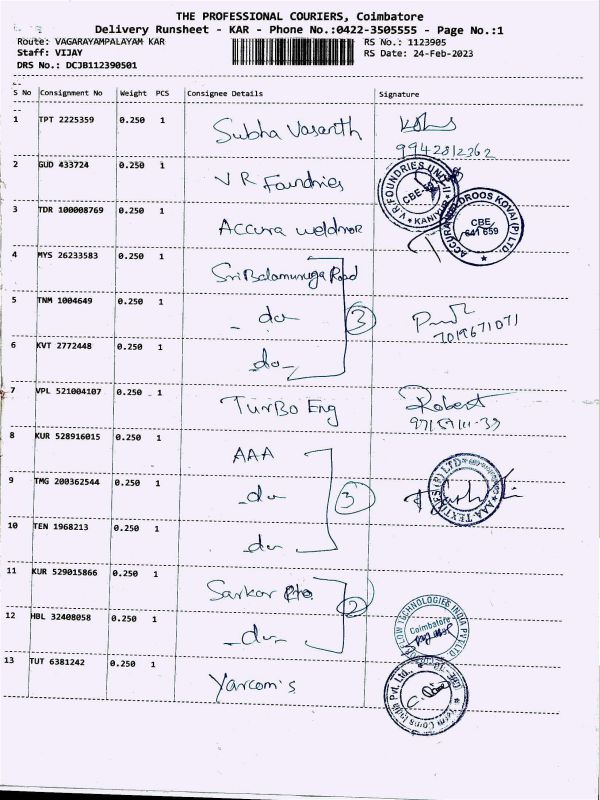 THE PROFESSIONAL COURIERS, Coimbatore
Delivery Runsheet - KAR - Phone No.:0422-3505555 - Page No.:1
Route: VAGARAYAMPALAYAM KAR
RS No.: 1123905
Staff: VIJAY
RS Date: 24-Feb-2023
DRS No.: DCJB112390501
S No Consignment No Weight PCS Consignee Details Signature
1 TPT 2225359 0.250 1 Subha Vasanth
9942812362
2 GUD 433724 0.250 1 V R Foundries
V.R. FOUNDRIES UNIT-II
CBE-
KANIYUR
3 TDR 100008769 0.250 1 Accura weldror
DROOS KOVAI (P) LTD.
CBE
641 659
4 MYS 26233583 0.250 1 Sri Balamuruga Road
5 TNM 1004649 0.250 1 - do
3
7019671071
6 KVT 2772448 0.250 1 do-
7 VPL 521004107 0.250 1 Turbo Eng Robert
8 KUR 528916015 0.250 1 AAA
AAA TEXTILES (P) LTD
9 TMG 200362544 0.250 1 -do-
3
10 TEN 1968213 0.250 1 do-
11 KUR 529015866 0.250 1 Sarkar
2
FLOW TECHNOLOGIES INDIA PVT LTD
Coimbatore
12 HBL 32408058 0.250 1 -do-
13 TUT 6381242 0.250 1 Yarcom's
Coins India Pvt. Ltd.,